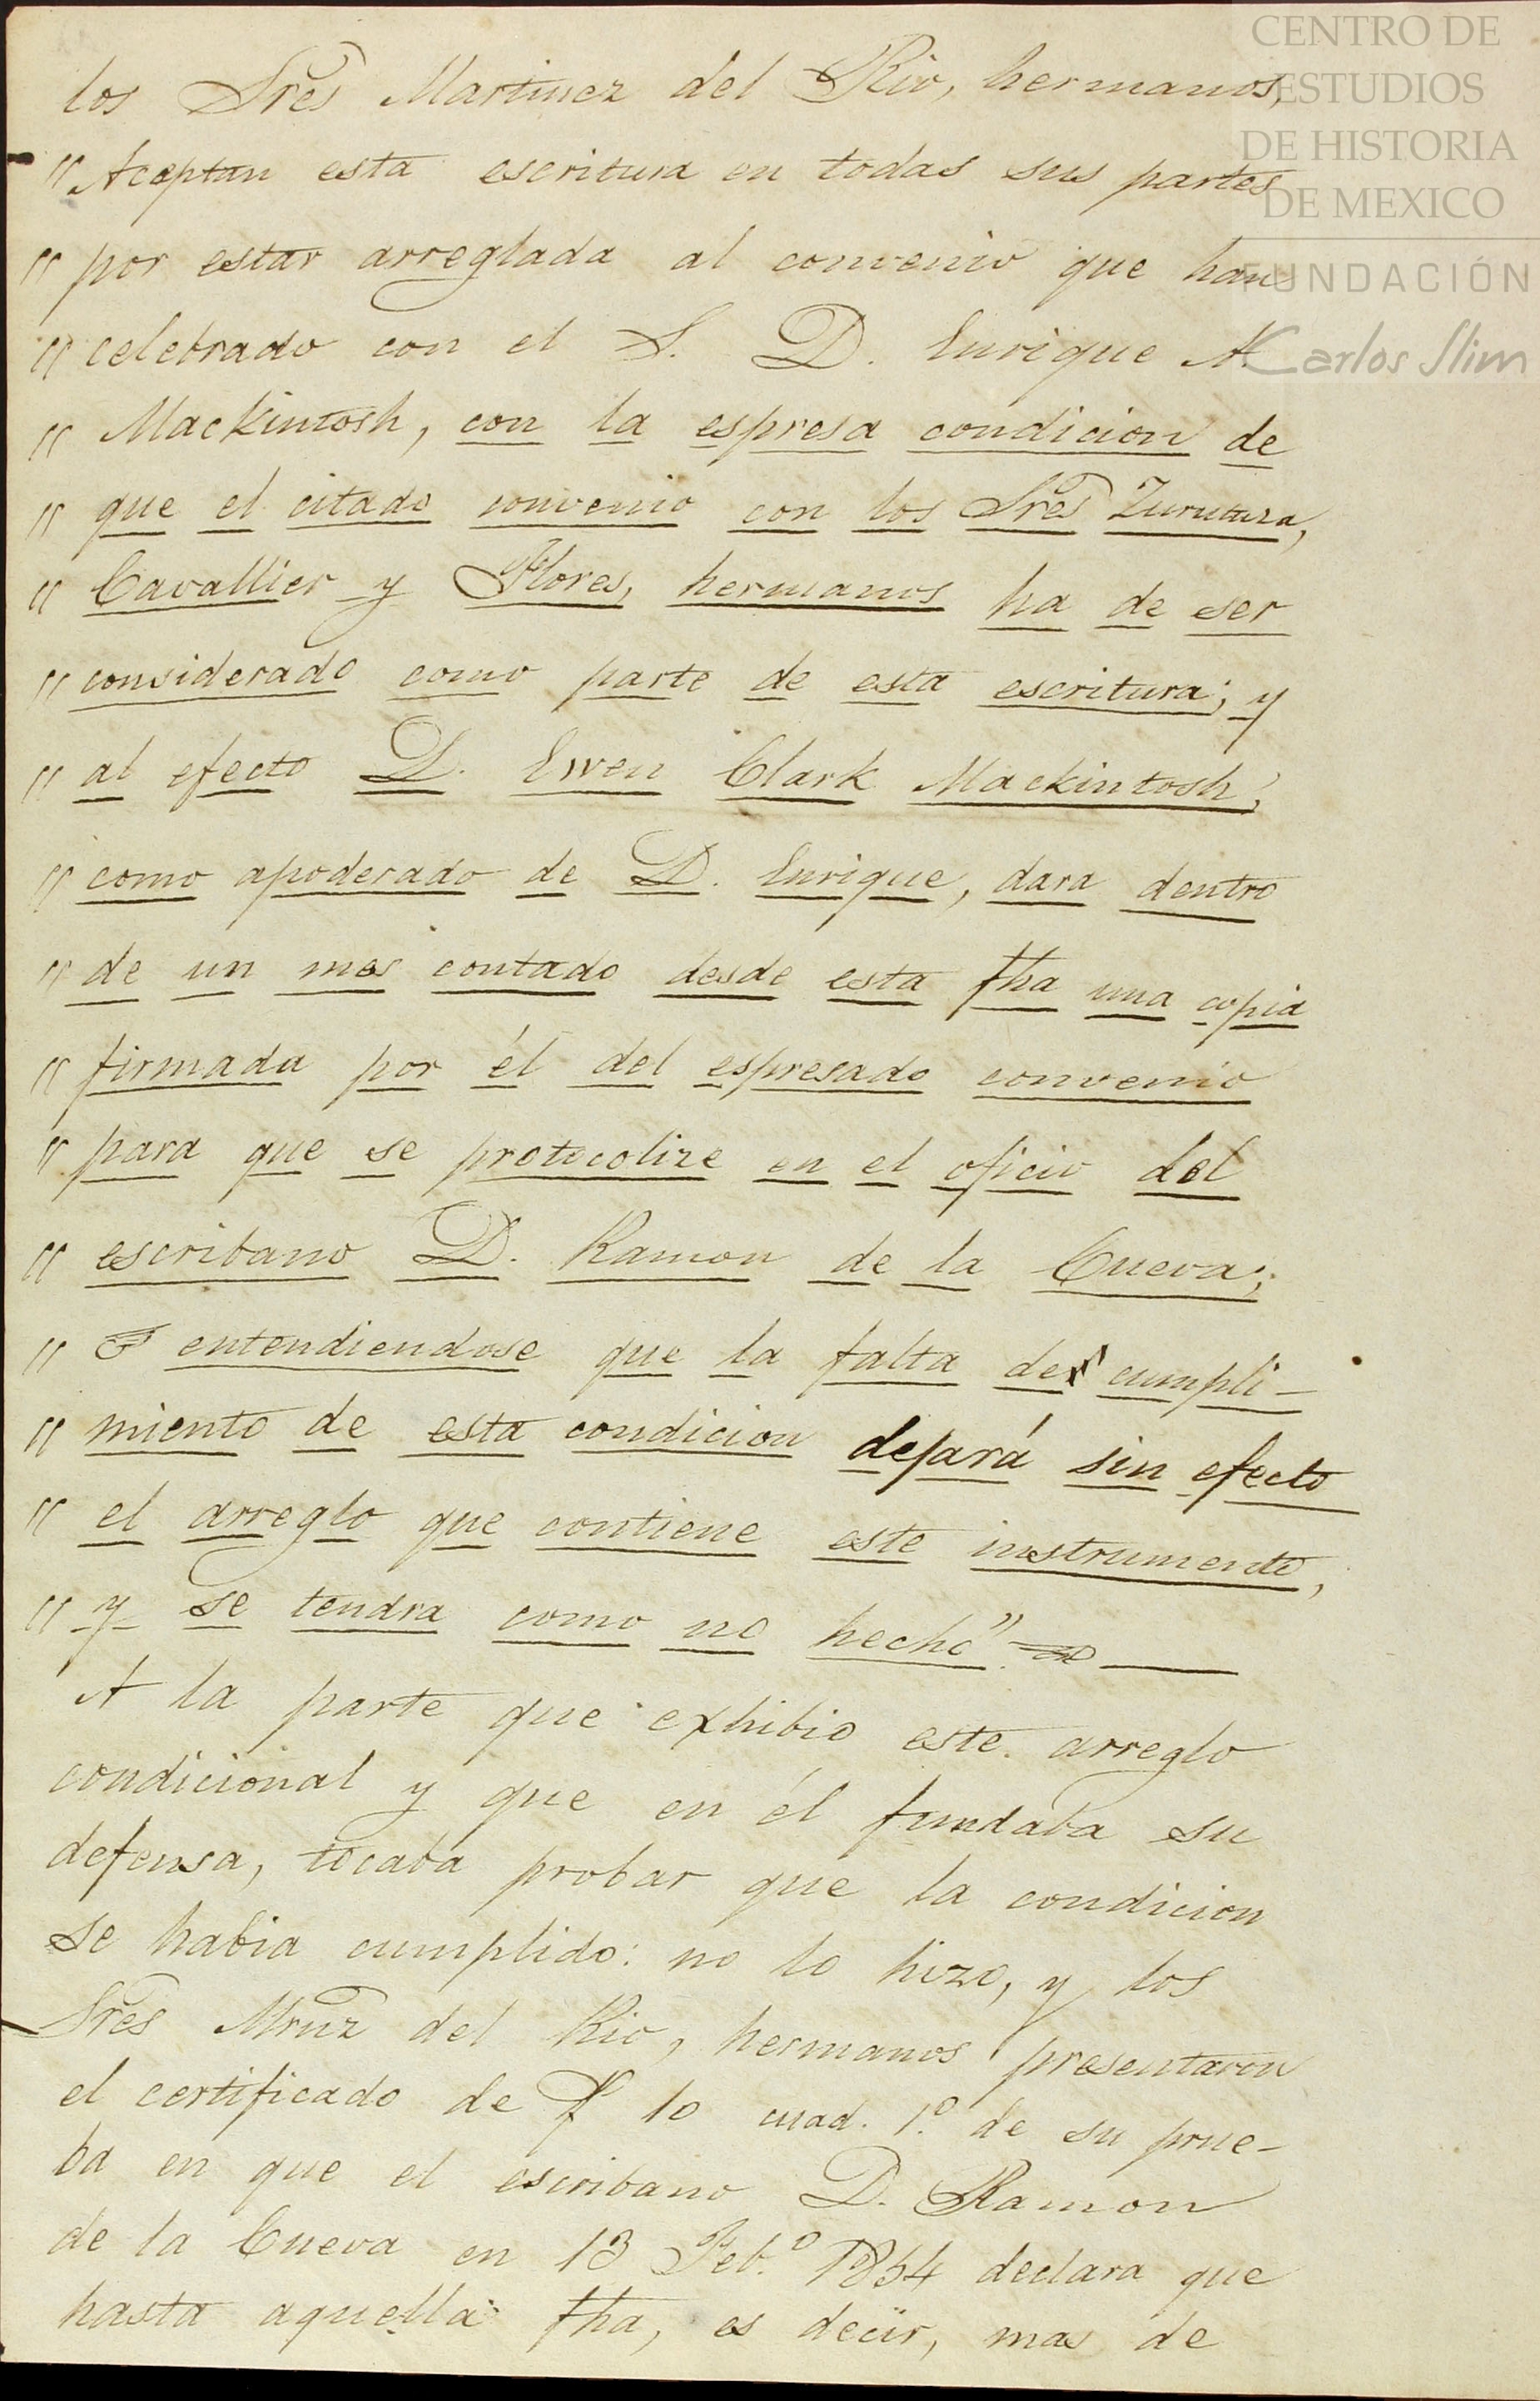 los Sres Martinez del Rio, hermanos,
" Aceptan esta escritura en todas sus partes
" por estar arreglada al convenio que han
" celebrado con el S. D. Enrique A.
" Mackintosh, con la espresa condicion de
" que el citado convenio con los Sres Zurutuza,
" Cavallier y Flores, hermanos ha de ser
" considerado como parte de esta escritura; y
" al efecto D. Ewen Clark Mackintosh,
" como apoderado de D. Enrique, dara dentro
" de un mes contado desde esta fha una copia
" firmada por él del espresado convenio
" para que se protocolize en el oficio del
" escribano D. Ramon de la Cueva;
" entendiendose que la falta de cumpli-
" miento de esta condicion dejará sin efecto
" el arreglo que contiene este instrumento,
" y se tendra como no hecho".
A la parte que exhibio este arreglo
condicional y que en él fundaba su
defensa, tocaba probar que la condicion
se habia cumplido: no lo hizo, y los
Sres Mrnz del Rio, hermanos presentaron
el certificado de f 10 cuad. 1.º de su prue-
ba en que el escribano D. Ramon
de la Cueva en 13 Feb.º 1854 declara que
hasta aquella fha, es decir, mas de
CENTRO DE
ESTUDIOS
DE HISTORIA
DE MEXICO
FUNDACIÓN
Carlos Slim